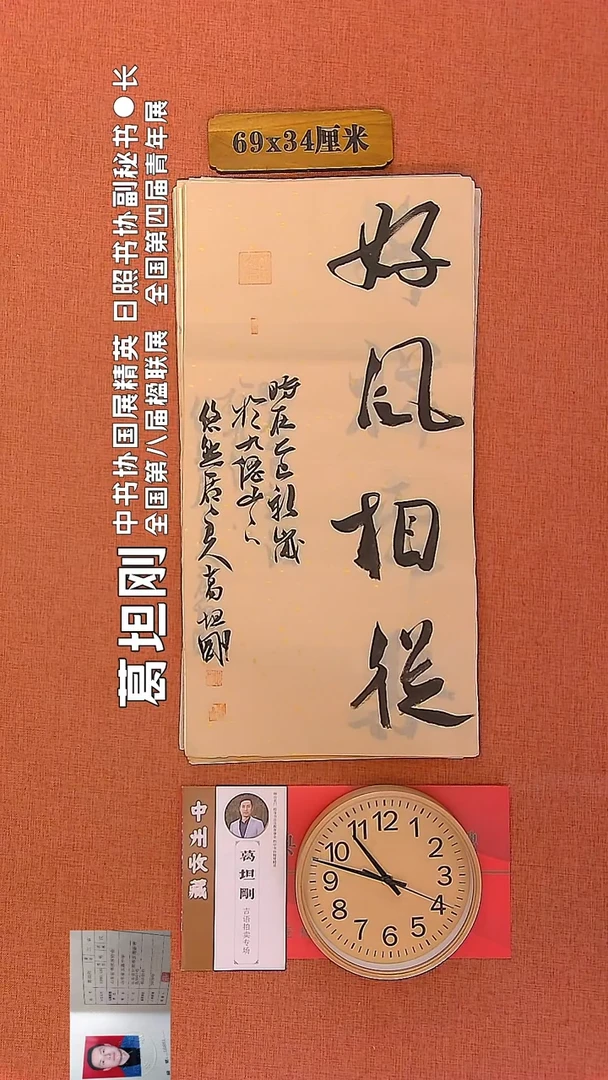 69x34厘米
好风相從
時在乙巳初歲
於九仙山之
悠然居主人葛坦剛
葛坦刚
中书协国展精英 日照书协副秘书●长
全国第八届楹联展 全国第四届青年展
中州收藏
葛坦剛
吉语拍卖专场
12
1
2
3
4
5
6
7
8
9
10
11